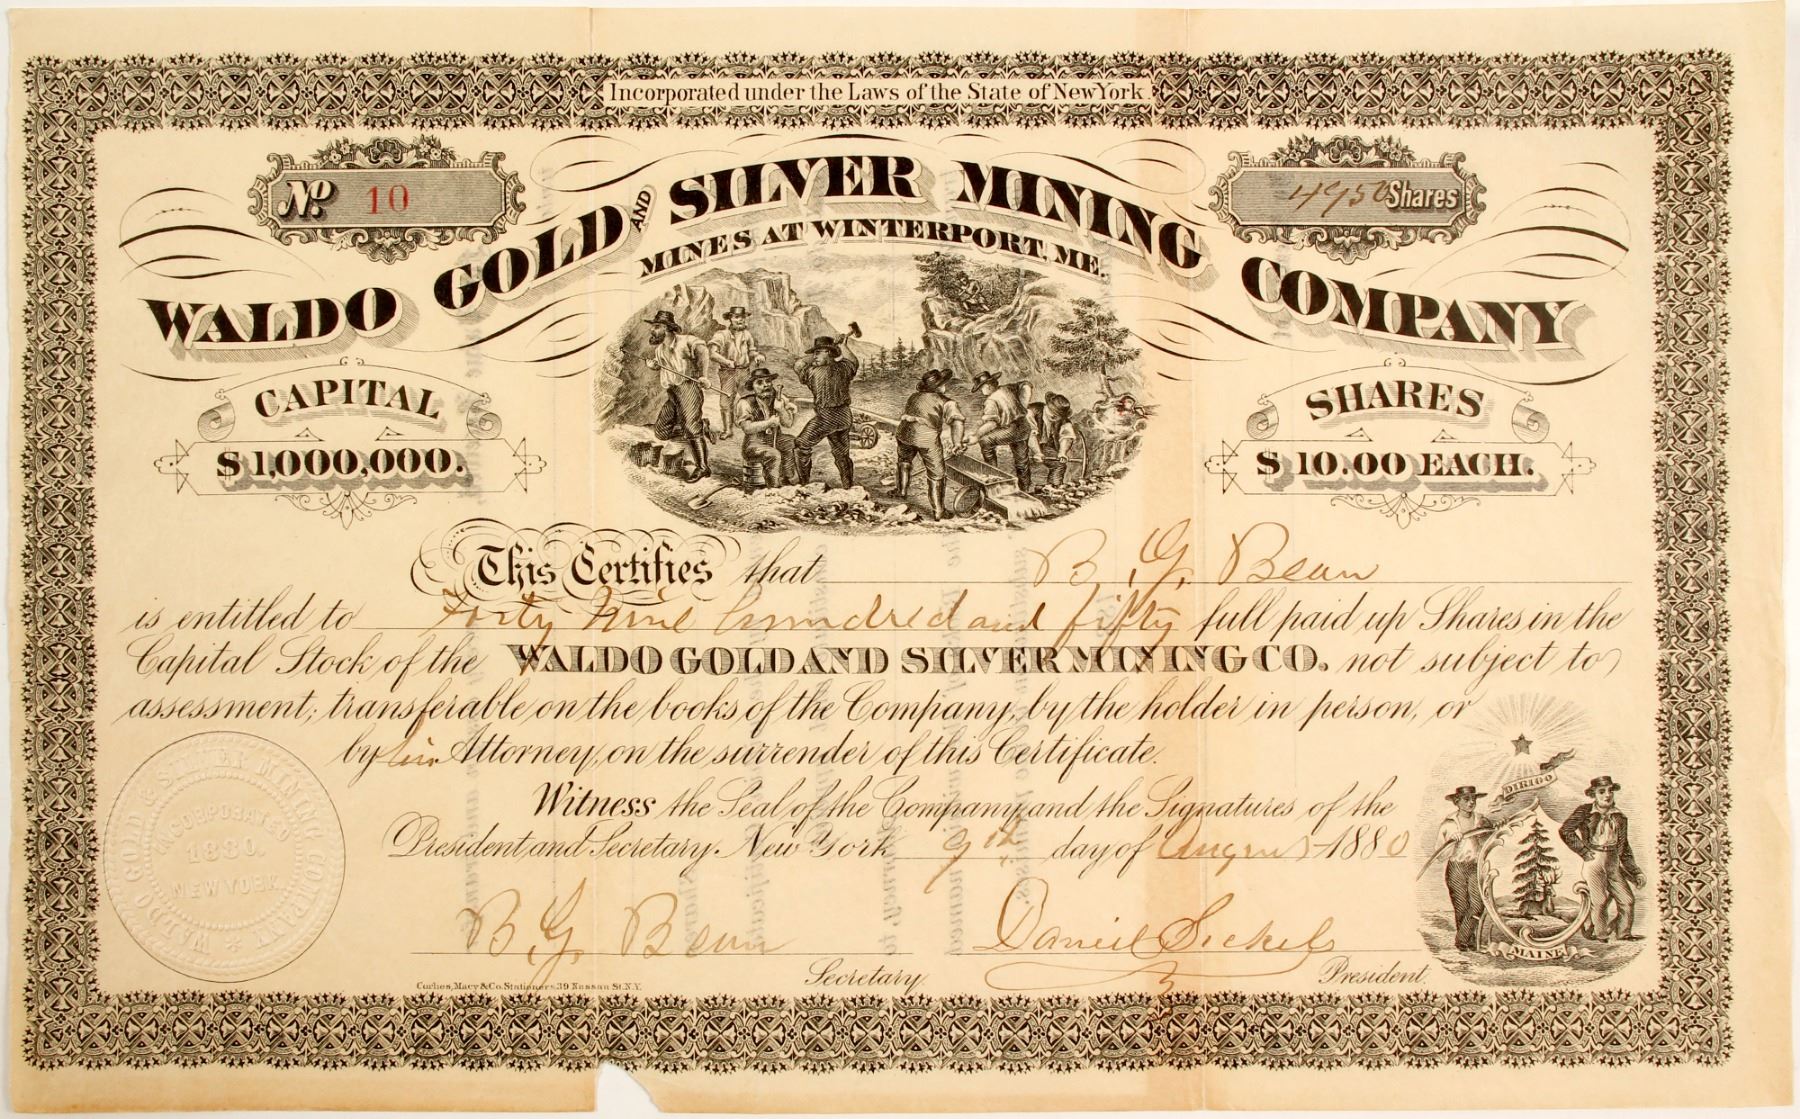 Incorporated under the Laws of the State of New York
No. 10
4950 Shares
WALDO GOLD AND SILVER MINING COMPANY
MINES AT WINTERPORT, ME.
CAPITAL
$1,000,000.
SHARES
$10.00 EACH.
This Certifies that B. G. Bean
is entitled to Forty Nine hundred and fifty full paid up Shares in the
Capital Stock of the WALDO GOLD AND SILVER MINING CO. not subject to
assessment; transferable on the books of the Company, by the holder in person, or
by his Attorney, on the surrender of this Certificate.
Witness the Seal of the Company and the Signatures of the
President and Secretary. New York 9th day of August 1880
B. G. Bean
Secretary.
Daniel Sickels
President.
WALDO GOLD & SILVER MINING COMPANY
INCORPORATED
1880.
NEW YORK
DIRIGO
MAINE
Corlies, Macy & Co. Stationers 39 Nassau St. N.Y.